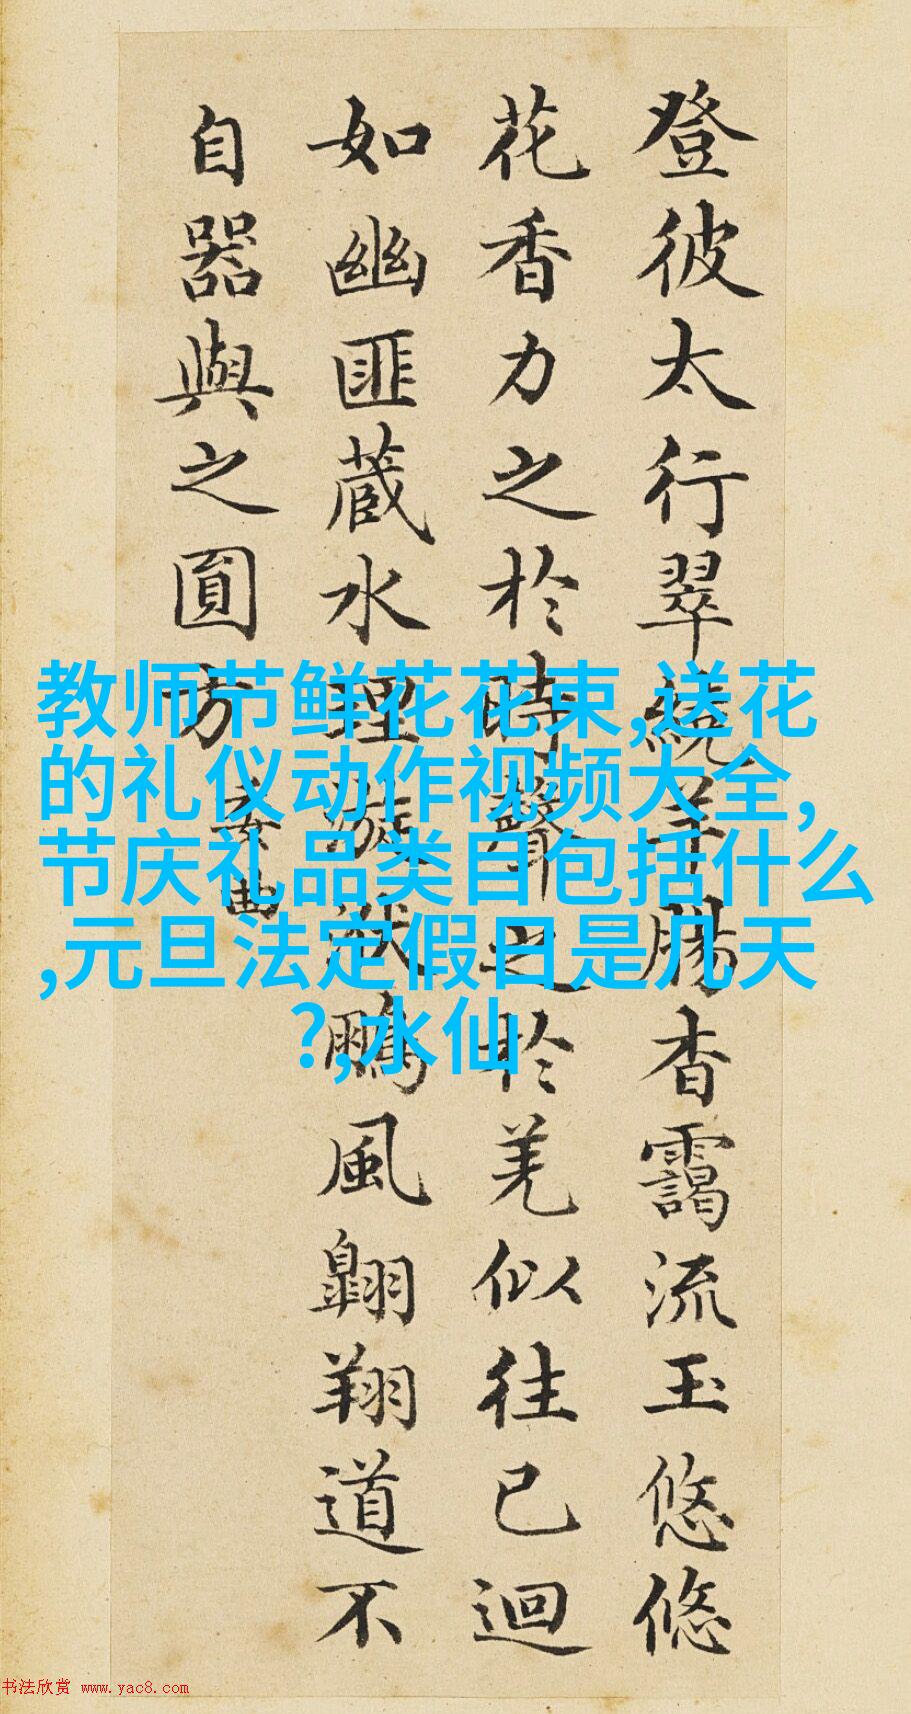 登彼太行翠繞羊腸杳靄流玉悠悠
花香力之於時聲之於羌似往已迴
如幽匪藏水理漩洑鵬風翺翔道不
自器與之圓方 委曲
教师节鲜花花束,送花
的礼仪动作视频大全,
节庆礼品类目包括什么
,元旦法定假日是几天
?,水仙
书法欣赏 www.yac8.com